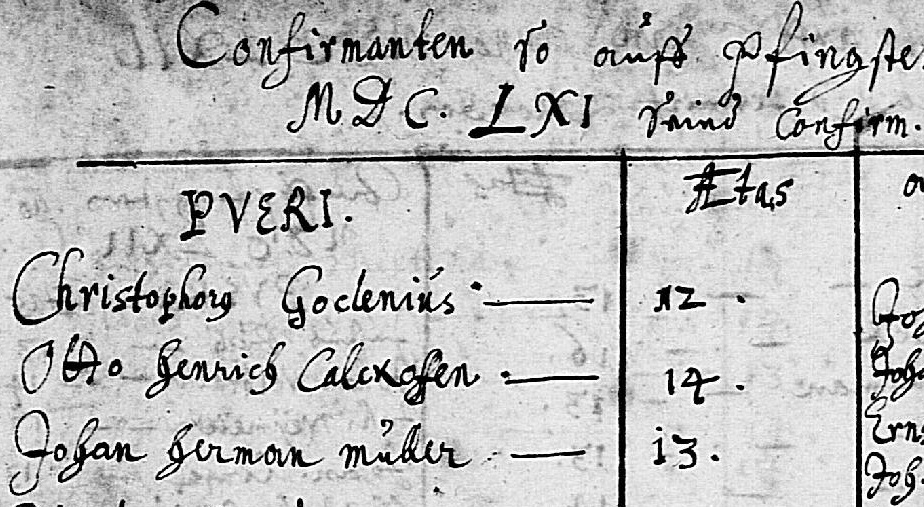 Confirmanten so auff Pfingste
MDC. LXI seind Confirm.
PVERI. Ætas
Christophorg Goclenius 12.
Otto Henrich Calckofen 14.
Johan Herman müller 13.
Joha
Ern
Joh.